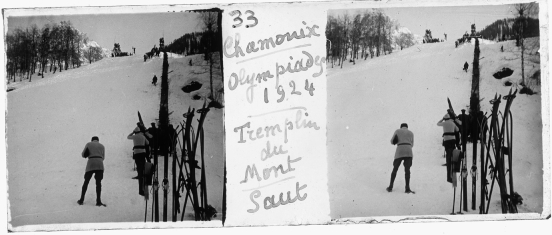 33
Chamonix
Olympiades
1924
Tremplin
du
Mont
Saut